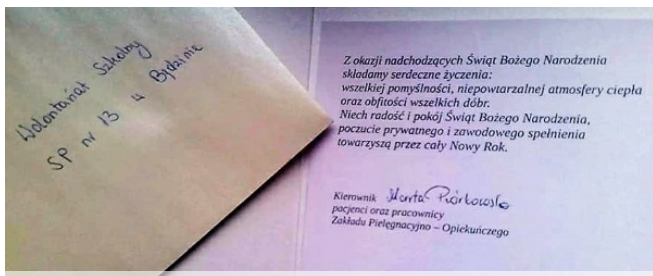 Wolontariat Szkolny
SP nr 13 w Będzinie
Z okazji nadchodzących Świąt Bożego Narodzenia
składamy serdeczne życzenia:
wszelkiej pomyślności, niepowtarzalnej atmosfery ciepła
oraz obfitości wszelkich dóbr.
Niech radość i pokój Świąt Bożego Narodzenia,
poczucie prywatnego i zawodowego spełnienia
towarzyszą przez cały Nowy Rok.
Kierownik Marta Piórkowska
pacjenci oraz pracownicy
Zakładu Pielęgnacyjno – Opiekuńczego